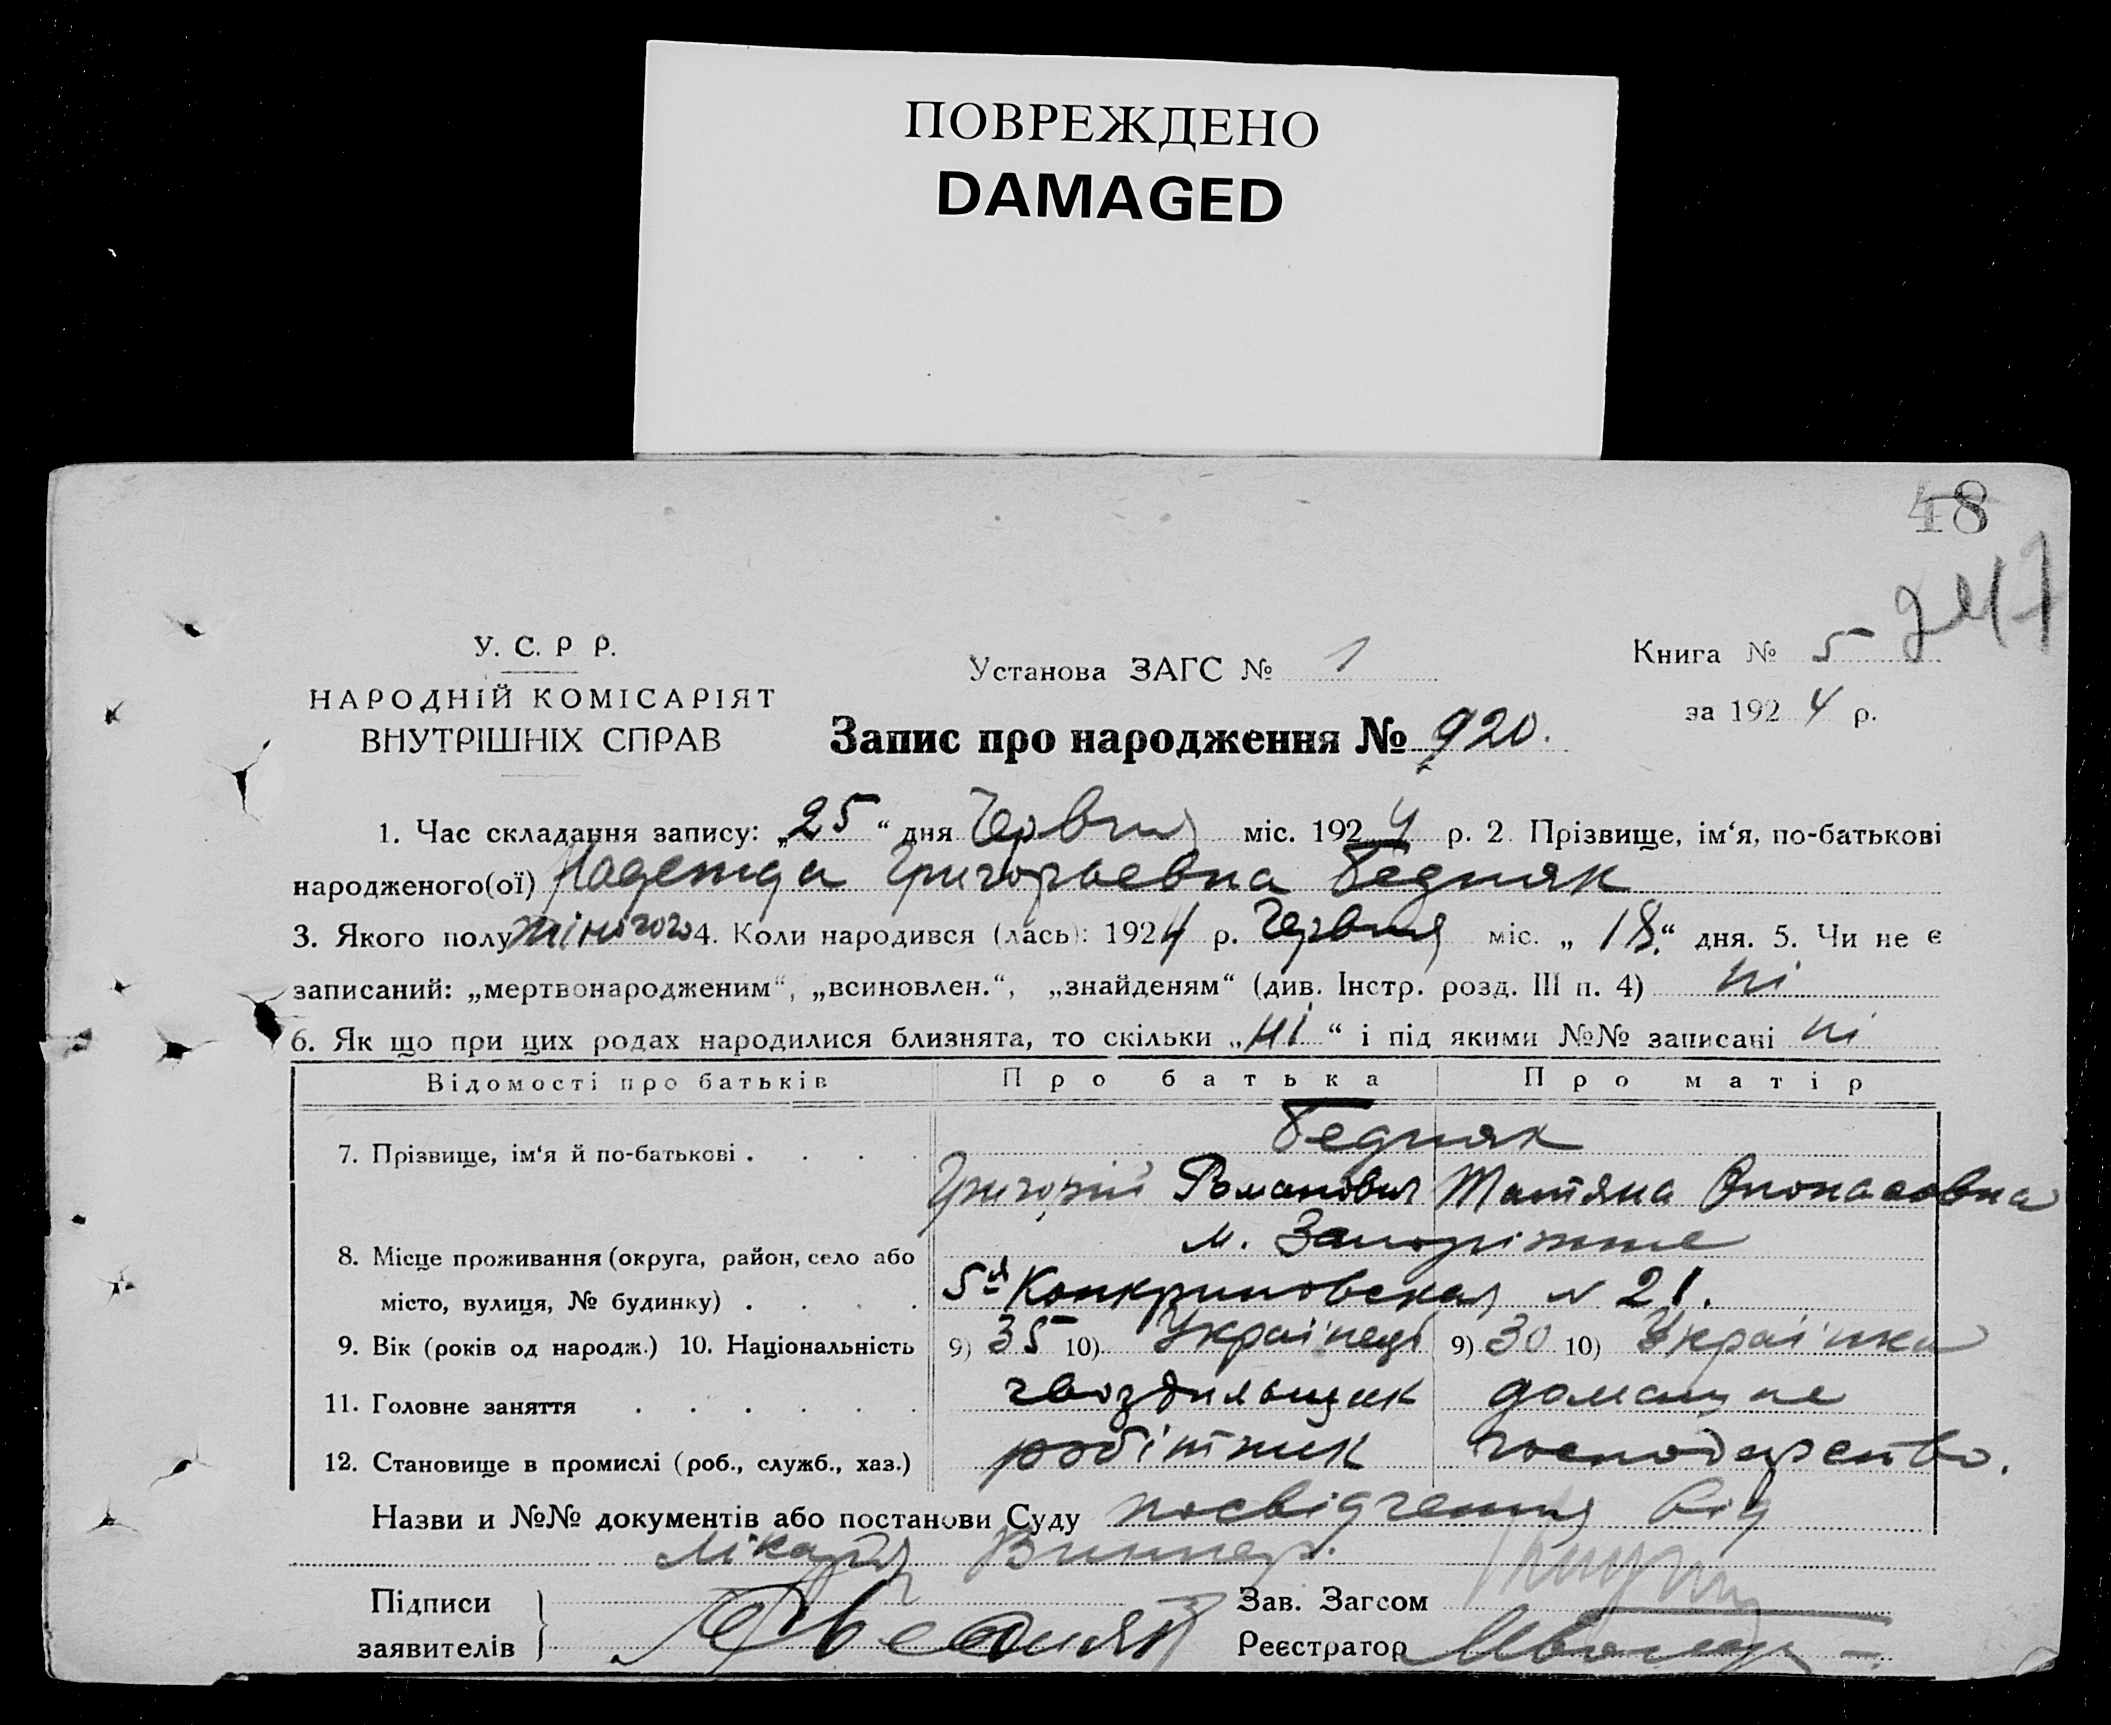 ПОВРЕЖДЕНО
DAMAGED
48
У. С. Р Р.
НАРОДНІЙ КОМІСАРІЯТ
ВНУТРІШНІХ СПРАВ
Установа ЗАГС № 1
Книга № 5
за 1924 р.
Запис про народження № 920.
1. Час складання запису: „25“ дня Червня міс. 1924 р. 2. Прізвище, ім‘я, по-батькові
народженого(ої) Надежда Григорьевна Бедняк
3. Якого полу жіночого 4. Коли народився (лась): 1924 р. Червня міс. „18“ дня. 5. Чи не є
записаний: „мертвонародженим“, „всиновлен.“, „знайденям“ (див. Інстр. розд. III п. 4) ні
6. Як що при цих родах народилися близнята, то скільки „ні“ і під якими №№ записані ні
Відомості про батьків Про батька Про матір
Бедняк
7. Прізвище, ім‘я й по-батькові .
Григорій Романович Матяна Опонасовна
м. Запоріжже
8. Місце проживання (округа, район, село або
місто, вулиця, № будинку) . 5я Конкриновская № 21.
9. Вік (років од народж.) 10. Національність 9) 35 10) Українець 9) 30 10) Українка
11. Головне заняття гвоздильщик домашне
12. Становище в промислі (роб., служб., хаз.) робітник господарство.
Назви и №№ документів або постанови Суду посвідчення від
лікаря Виннер.
Підписи
заявителів Бедняк
Зав. Загсом
Реєстратор